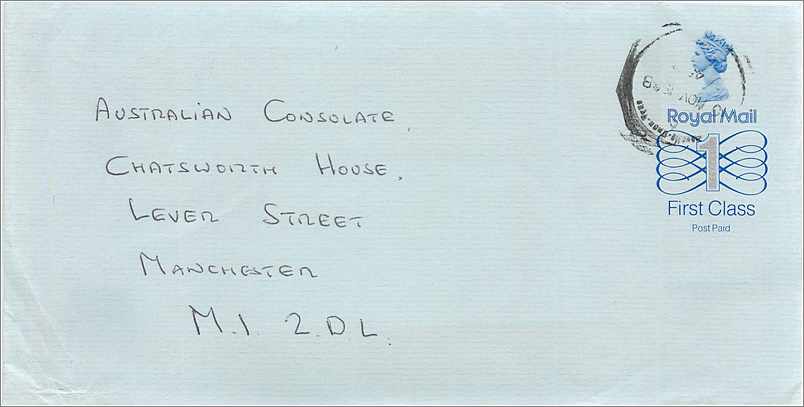 AUSTRALIAN CONSOLATE.
CHATSWORTH HOUSE.
LEVER STREET
MANCHESTER
M.1. 2.D L.
NOV
Royal Mail
1
First Class
Post Paid